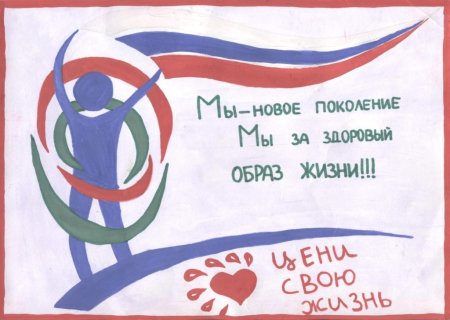 Мы-новое поколение
Мы за здоровый
образ жизни!!!
цени
свою
жизнь